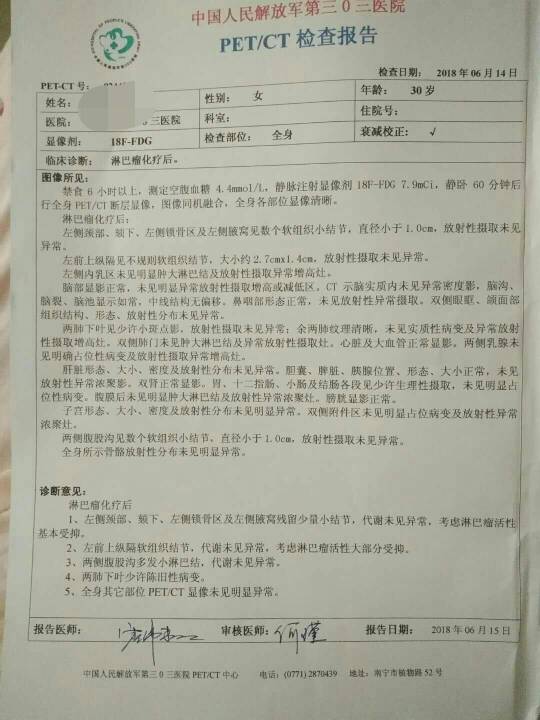 中国人民解放军第三０三医院
PET/CT 检查报告
检查日期： 2018 年 06 月 14日
PET-CT 号：
姓名： 性别： 女 年龄： 30 岁
医院： 三医院 科室： 住院号：
显像剂： 18F-FDG 检查部位： 全身 衰减校正： √
临床诊断： 淋巴瘤化疗后。
图像所见：
禁食 6 小时以上，测定空腹血糖 4.4mmol/L，静脉注射显像剂 18F-FDG 7.9mCi，静卧 60 分钟后
行全身 PET/CT 断层显像，图像同机融合，全身各部位显像清晰。
淋巴瘤化疗后：
左侧颈部、颏下、左侧锁骨区及左侧腋窝见数个软组织小结节，直径小于 1.0cm，放射性摄取未见
异常。
左前上纵隔见不规则软组织结节，大小约 2.7cmx1.4cm，放射性摄取未见异常。
左侧内乳区未见明显肿大淋巴结及放射性摄取异常增高灶。
脑部显影正常，未见明显异常放射性摄取增高或减低区。CT 示脑实质内未见异常密度影，脑沟、
脑裂、脑池显示如常，中线结构无偏移。鼻咽部形态正常，未见放射性异常摄取。双侧眼眶、颌面部
组织结构、形态、放射性分布未见异常。
两肺下叶见少许小斑点影，放射性摄取未见异常；余两肺纹理清晰，未见实质性病变及异常放射
性摄取增高灶。双侧肺门未见肿大淋巴结及异常放射性摄取灶。心脏及大血管正常显影。两侧乳腺未
见明确占位性病变及放射性摄取异常增高灶。
肝脏形态、大小、密度及放射性分布未见明显异常。胆囊、脾脏、胰腺位置、形态、大小正常，未见
放射性异常浓聚影。双肾正常显影。胃、十二指肠、小肠及结肠各段见少许生理性摄取，未见明显占
位性病变。腹膜后未见明显肿大淋巴结及放射性异常浓聚灶。膀胱显影正常。
子宫形态、大小、密度及放射性分布未见明显异常。双侧附件区未见明显占位病变及放射性异常
浓聚灶。
两侧腹股沟见数个软组织小结节，直径小于 1.0cm，放射性摄取未见异常。
全身所示骨骼放射性分布未见明显异常。
诊断意见：
淋巴瘤化疗后
1、左侧颈部、颏下、左侧锁骨区及左侧腋窝残留少量小结节，代谢未见异常，考虑淋巴瘤活性
基本受抑。
2、左前上纵隔软组织结节，代谢未见异常，考虑淋巴瘤活性大部分受抑。
3、两侧腹股沟多发小淋巴结，代谢未见异常。
4、两肺下叶少许陈旧性病变。
5、全身其它部位 PET/CT 显像未见明显异常。
报告医师： 审核医师： 报告日期： 2018 年 06 月 15日
中国人民解放军第三０三医院 PET/CT 中心 电话：(0771) 2870439 地址：南宁市植物路 52 号